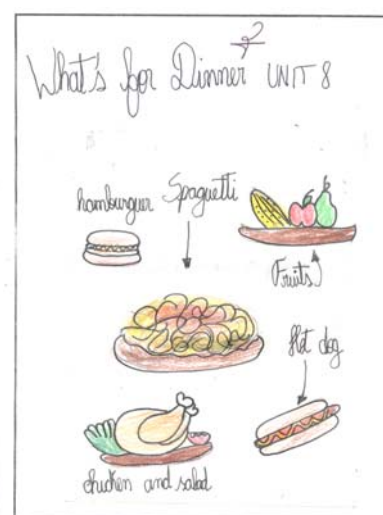 What's for Dinner? UNIT 8
hamburguer
Spaguetti
Fruits
Hot dog
chicken and salad